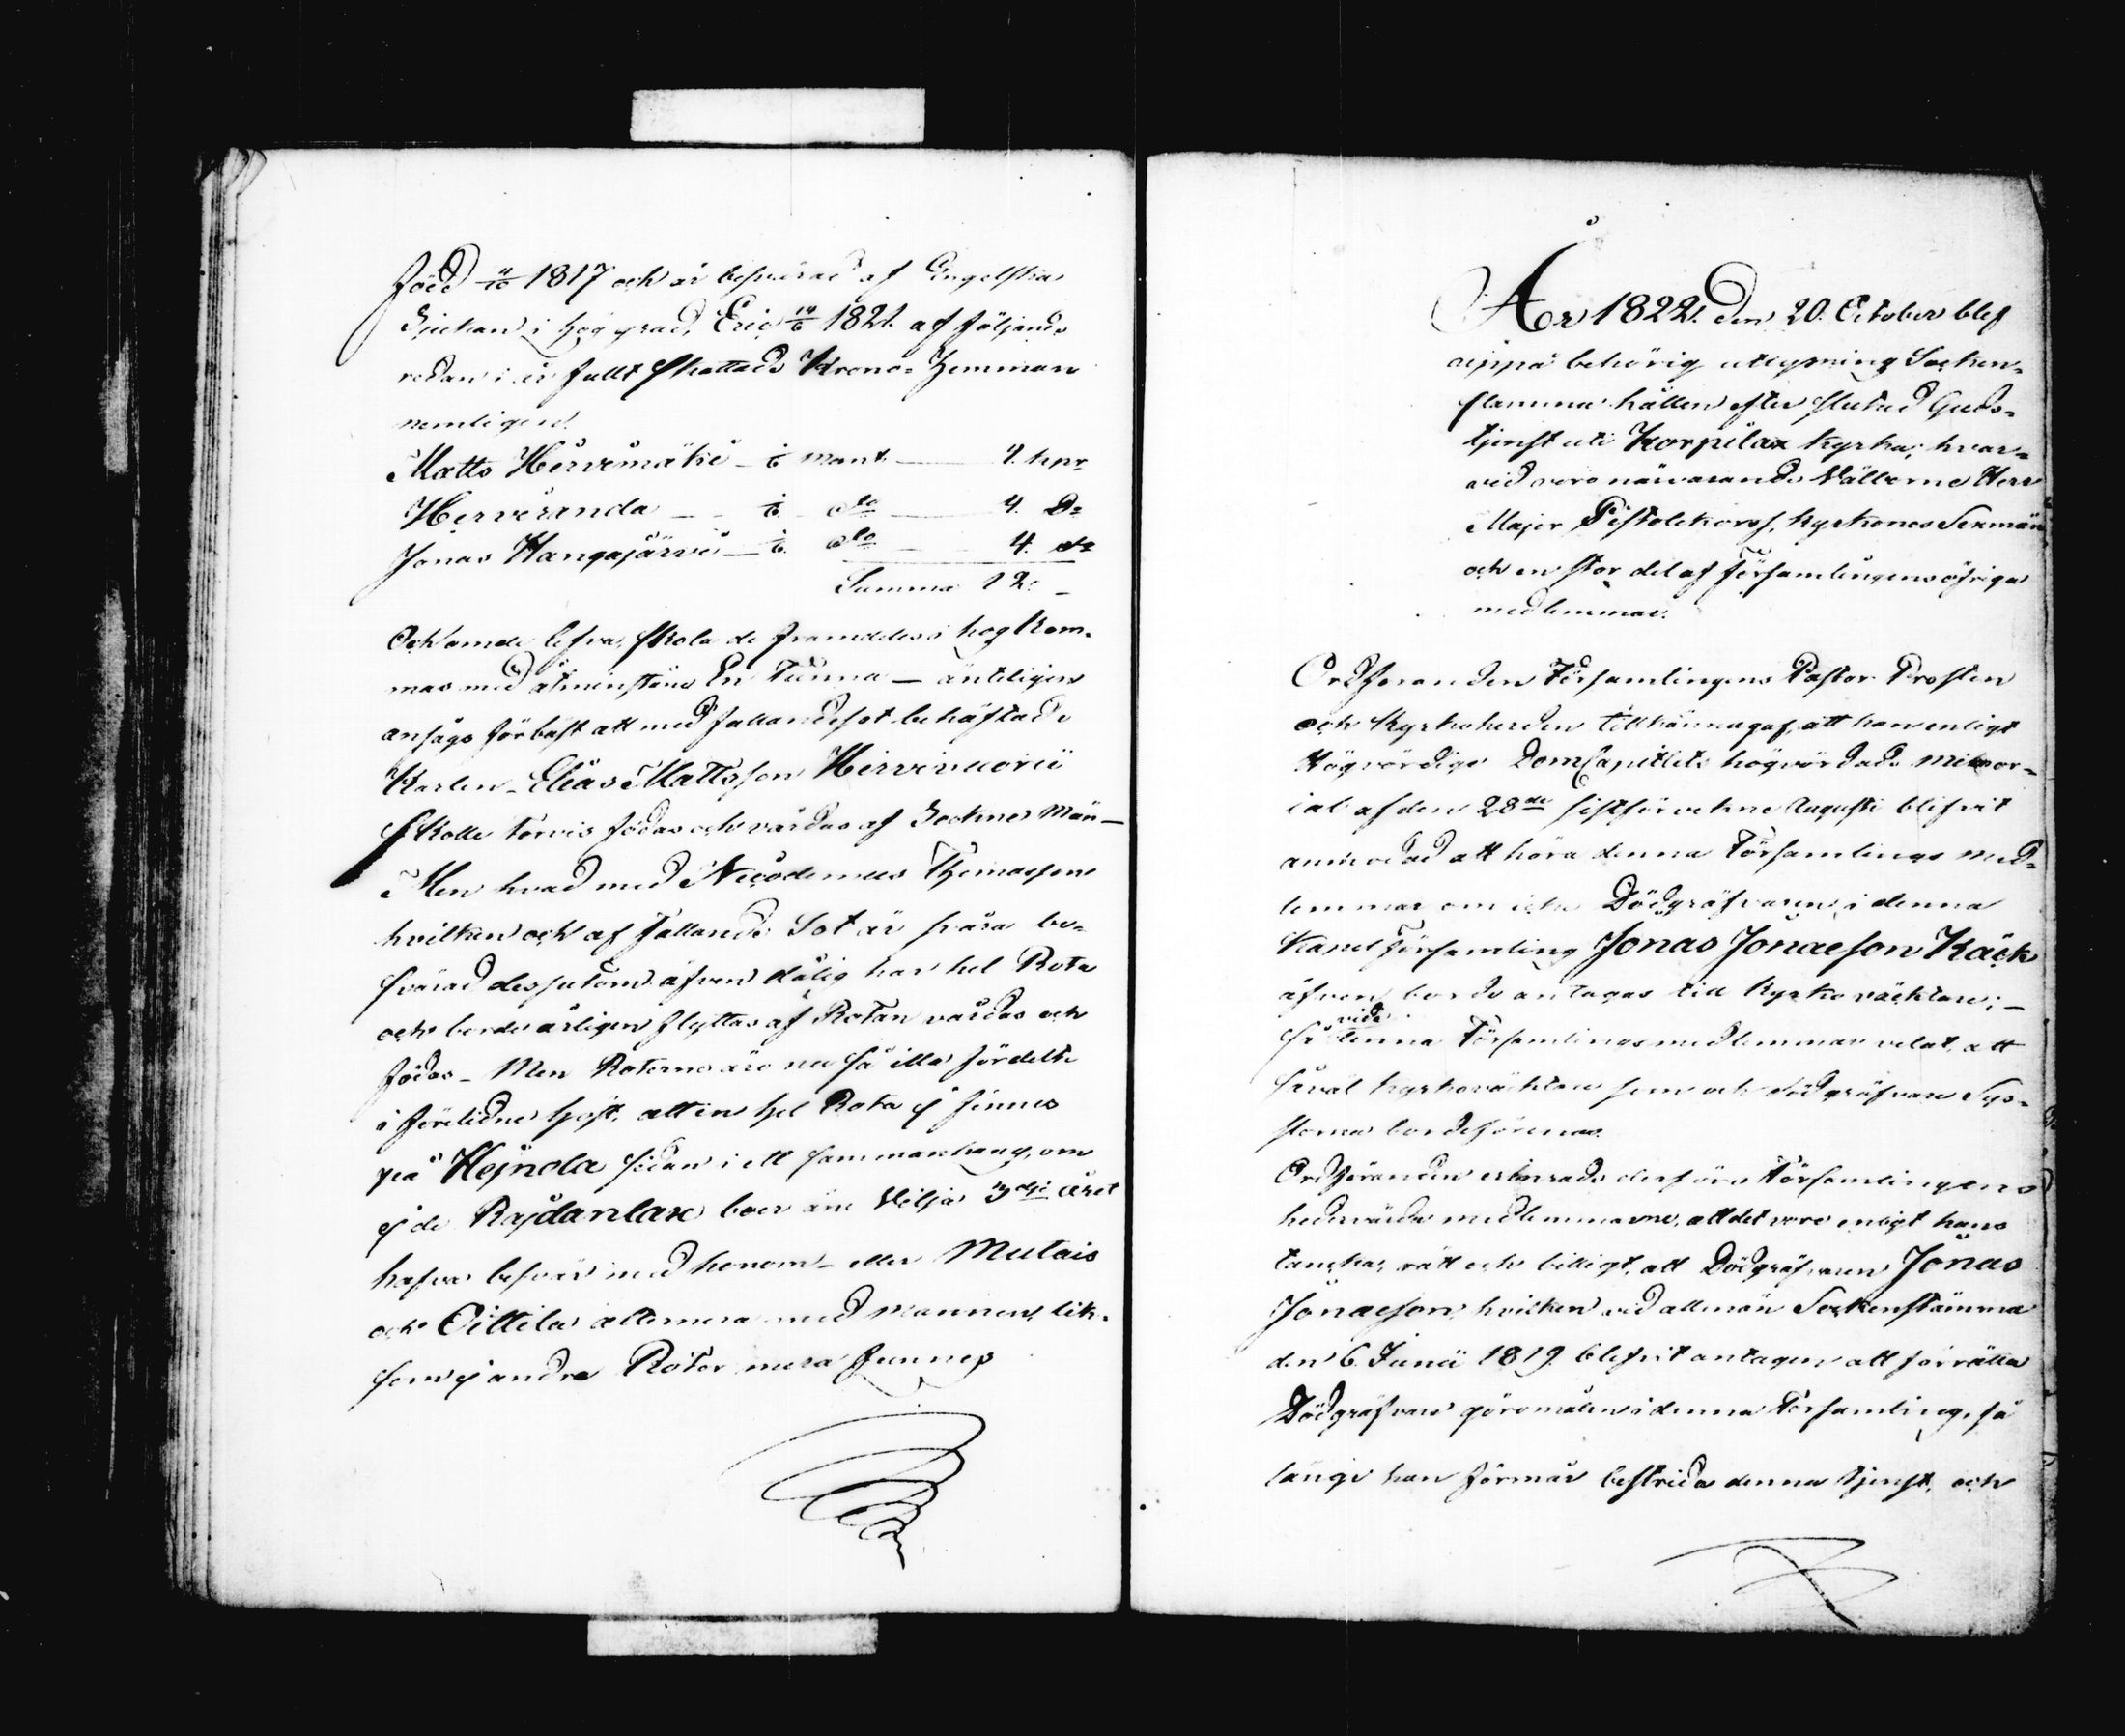 född 11/10 1817 och är besvärad af Engelska
Sjukan i hög grad, Eric 19/6 1821. af följande
redan i år fullt skattade Krono-Hemman
nemligen.
Matts Hirvimäki – 1/6 mant. — 4. kpr
Herveranda – – 1/6 do — 4. Do
Jonas Hangajärvi – 1/6. do — 4. do
Summa 12. –
Och om de lefva, skola de framdeles i hogkom-
mas med åtminstone En Tunna – änteligen
ansågs för bäst att med fallandesot behäftade
Karlen – Elias Mattsson Hirvivuorii
skulle rotvis födas och vårdas af Sockne Män –
Men hvad med Nicodemus Thomasson
hvilken och af fallande Sot är svåra be-
svärad dessutom äfven dålig har hel Rota
och borde årligen flyttas af Rotan vårdas och
födas – Men Roterne äro nu så illa fördelte
i förledne höst, att en hel Rota ej finnes
på Hejnola sidan i ett sammanhang, om
ej de Rajdanlax boer än Vilja 3dje året
hafva besvär med honom – eller Mutais
och Oittila alternera med mannen, lik-
som ej andra Rotor mera funnes
År 1822. den 20. October blef
uppå behörig utlysning Socken-
stämma hållen efter slutad Guds-
tjenst uti Korpilax Kyrka; hvar-
vid voro närvarande Välborne Herr
Major Pistolekors, Kyrkones Sexmän
och en stor del af Församlingens öfriga
medlemmar.
Ordföranden Församlingens Pastor Prosten
och Kyrkoherden tillkännagaf, att han enligt
Högvördige DomCapitlets högvördade memor-
ial af den 28de sistförvekne Augusti blifvit
anmodad att höra denna Församlings med-
lemmar om icke Dödgräfvaren i denna
Kapell församling Jonas Jonaeson Käck
äfven borde antagas till Kyrkoväcktare; –
vida
så denna Församlings medlemmar velat, att
såväl Kyrkoväcktare som och dödgräfvare Sys-
slorna borde förenas.
Ordföranden erinrade derföre Församlingens
hedervärda medlemmarne, att det vore enligt hans
tanckar, rätt och billigt, att Dödgräfvaren Jonas
Jonaeson, hvilken vid allmän Sockenstämma
den 6. Junii 1819 blifvit antagen att förrätta
Dödgräfvare göromålen i denna Församling, så
länge han förmår bestrida denna tjenst, och